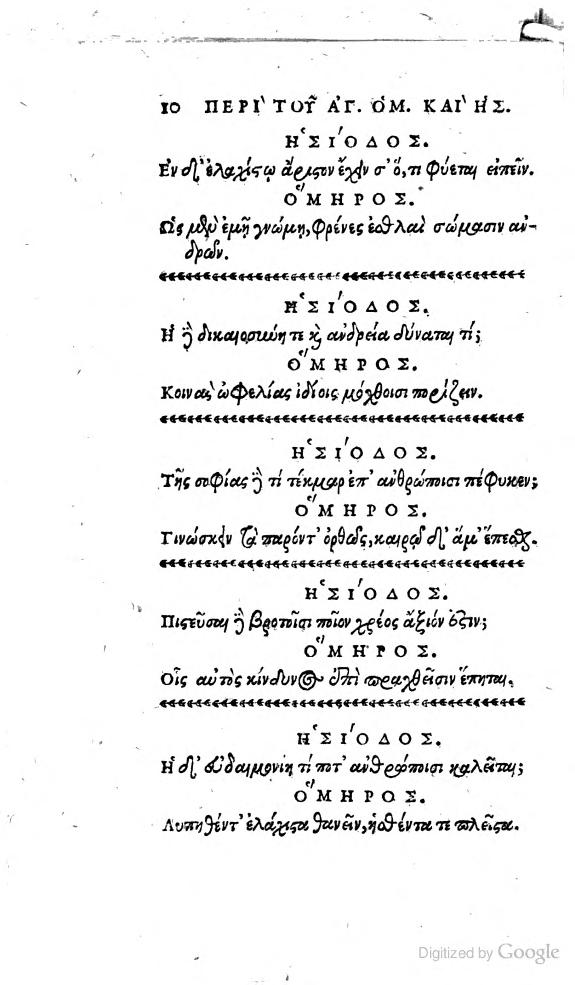 10 ΠΕΡΙ` ΤΟΥ͂ ἈΓ. ὉΜ. ΚΑΙ` ἩΣ.
ἩΣΙ´ΟΔΟΣ.
Ἐν δ' ἐλαχίστῳ ἄριστον ἔχειν σ' ὅ, τι φύεται εἰπεῖν.
ὍΜΗΡΟΣ.
Ὡς μὲν ἐμῇ γνώμῃ, φρένες ἐσθλαὶ σώμασιν ἀν-
δρῶν.
ἩΣΙ´ΟΔΟΣ.
Ἡ ἢ δικαιοσύνη τε κὶ ἀνδρεία δύναται τί;
ὍΜΗΡΟΣ.
Κοινὰς ὠφελίας ἰδίοις μόχθοισι πορίζειν.
ἩΣΙ´ΟΔΟΣ.
Τῆς σοφίας ἢ τί τέκμαρ ἐπ' ἀνθρώποισι πέφυκεν;
ὍΜΗΡΟΣ.
Γινώσκειν τὰ παρόντ' ὀρθῶς, καιρῷ δ' ἅμ' ἕπεσθαι.
ἩΣΙ´ΟΔΟΣ.
Πιστεῦσαι ἢ βροτοῖσι ποῖον χρέος ἄξιόν ἐστιν;
ὍΜΗΡΟΣ.
Οἷς αὐτὸς κίνδυνος ἐπὶ πραχθεῖσιν ἕπηται.
ἩΣΙ´ΟΔΟΣ.
Ἡ δ' εὐδαιμονίη τί ποτ' ἀνθρώποισι καλεῖται;
ὍΜΗΡΟΣ.
Λυπηθέντ' ἐλάχιστα θανεῖν, ἡσθέντα τε πλεῖστα.
Digitized by Google